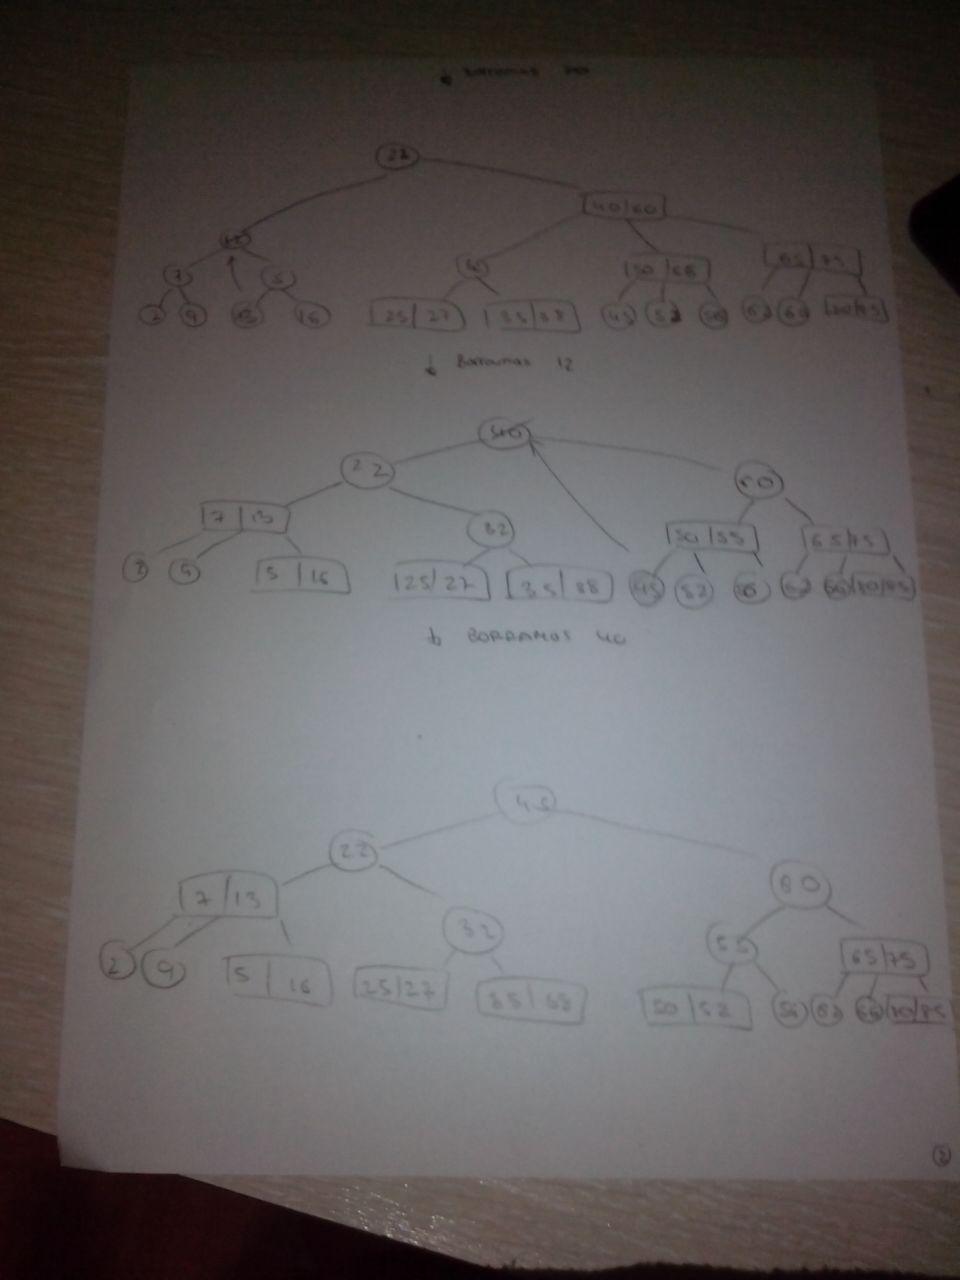 ↓ Borramos
22
40|60
12
7
5
50|55
65|75
2 9 13 16 25|27 35|38 45 52 56 62 66 80|85
↓ Borramos 12
40
22
60
7|13
32
50|55
65|75
2 9 5|16 25|27 35|38 45 52 56 62 66 80|85
↓ BORRAMOS 40
45
22
60
7|13
32
55
65|75
2 9 5|16 25|27 50|52 56 62 66
2